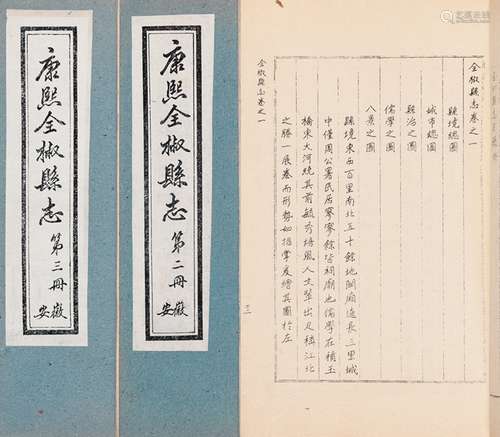 康熙全椒縣志 第三冊 安徽
康熙全椒縣志 第二冊 安徽
全椒縣志卷之一
縣境總圖
城市總圖
縣治之圖
儒學之圖
八景之圖
縣境東西百里南北五十餘地闊
中僅周公署民居寥寥餘皆祠廟也儒學在積玉
橋東大河繞其前毓秀培風人文輩出足稱江北
之勝一展卷而形勢如指掌爰繪其圖於左
全椒縣志卷之一
三